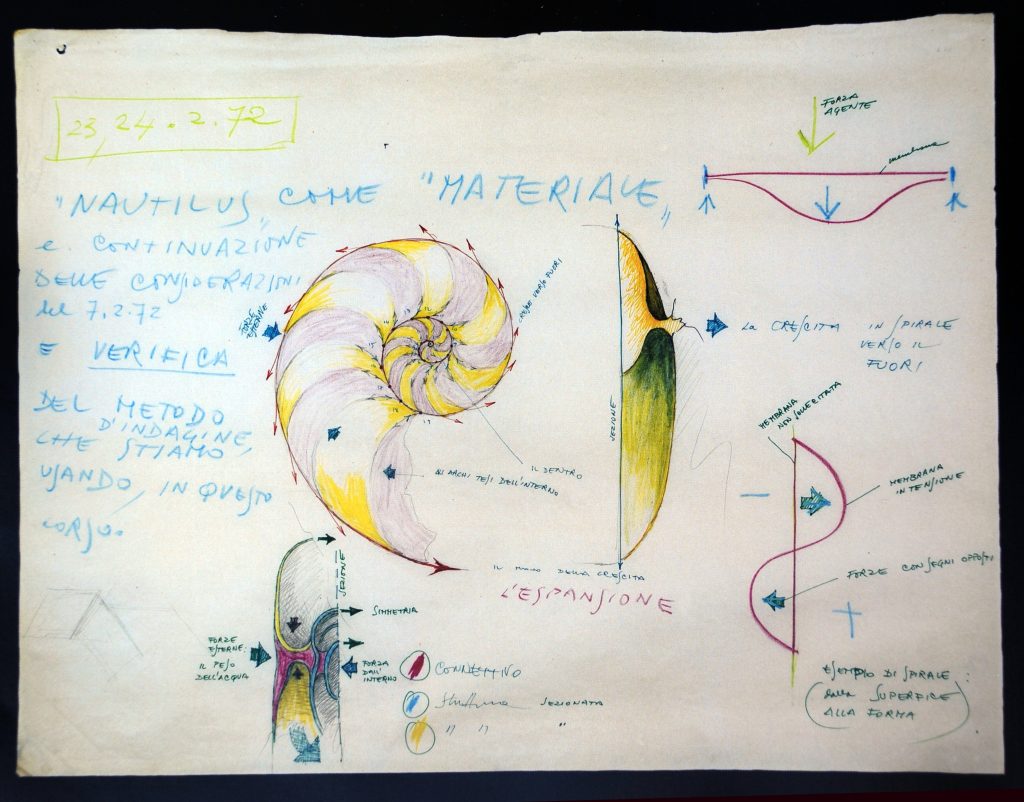 23, 24.2.72
"NAUTILUS„ COME "MATERIALE„
e. CONTINUAZIONE
DELLE CONSIDERAZIONI
del 7.2.72
E VERIFICA
DEL METODO
D'INDAGINE,
CHE STIAMO
USANDO, IN QUESTO
CORSO.
FORZA
AGENTE
membrana
FORZE
ESTERNE
VERSO FUORI
LA CRESCITA IN SPIRALE
VERSO IL
FUORI
SEZIONE
IL DENTRO
GLI ARCHI TESI DELL'INTERNO
MEMBRANA
NON SOLLECITATA
MEMBRANA
IN TENSIONE
FORZE CON SEGNI OPPOSTI
IL DELLA CRESCITA
L'ESPANSIONE
SEZIONE
SIMMETRIA
FORZE
ESTERNE:
IL PESO
DELL'ACQUA
FORZA
DALL'
INTERNO
CONNETTIVO
Struttura SEZIONATA
" " "
ESEMPIO DI SPIRALE:
(dalla SUPERFICE
ALLA FORMA)